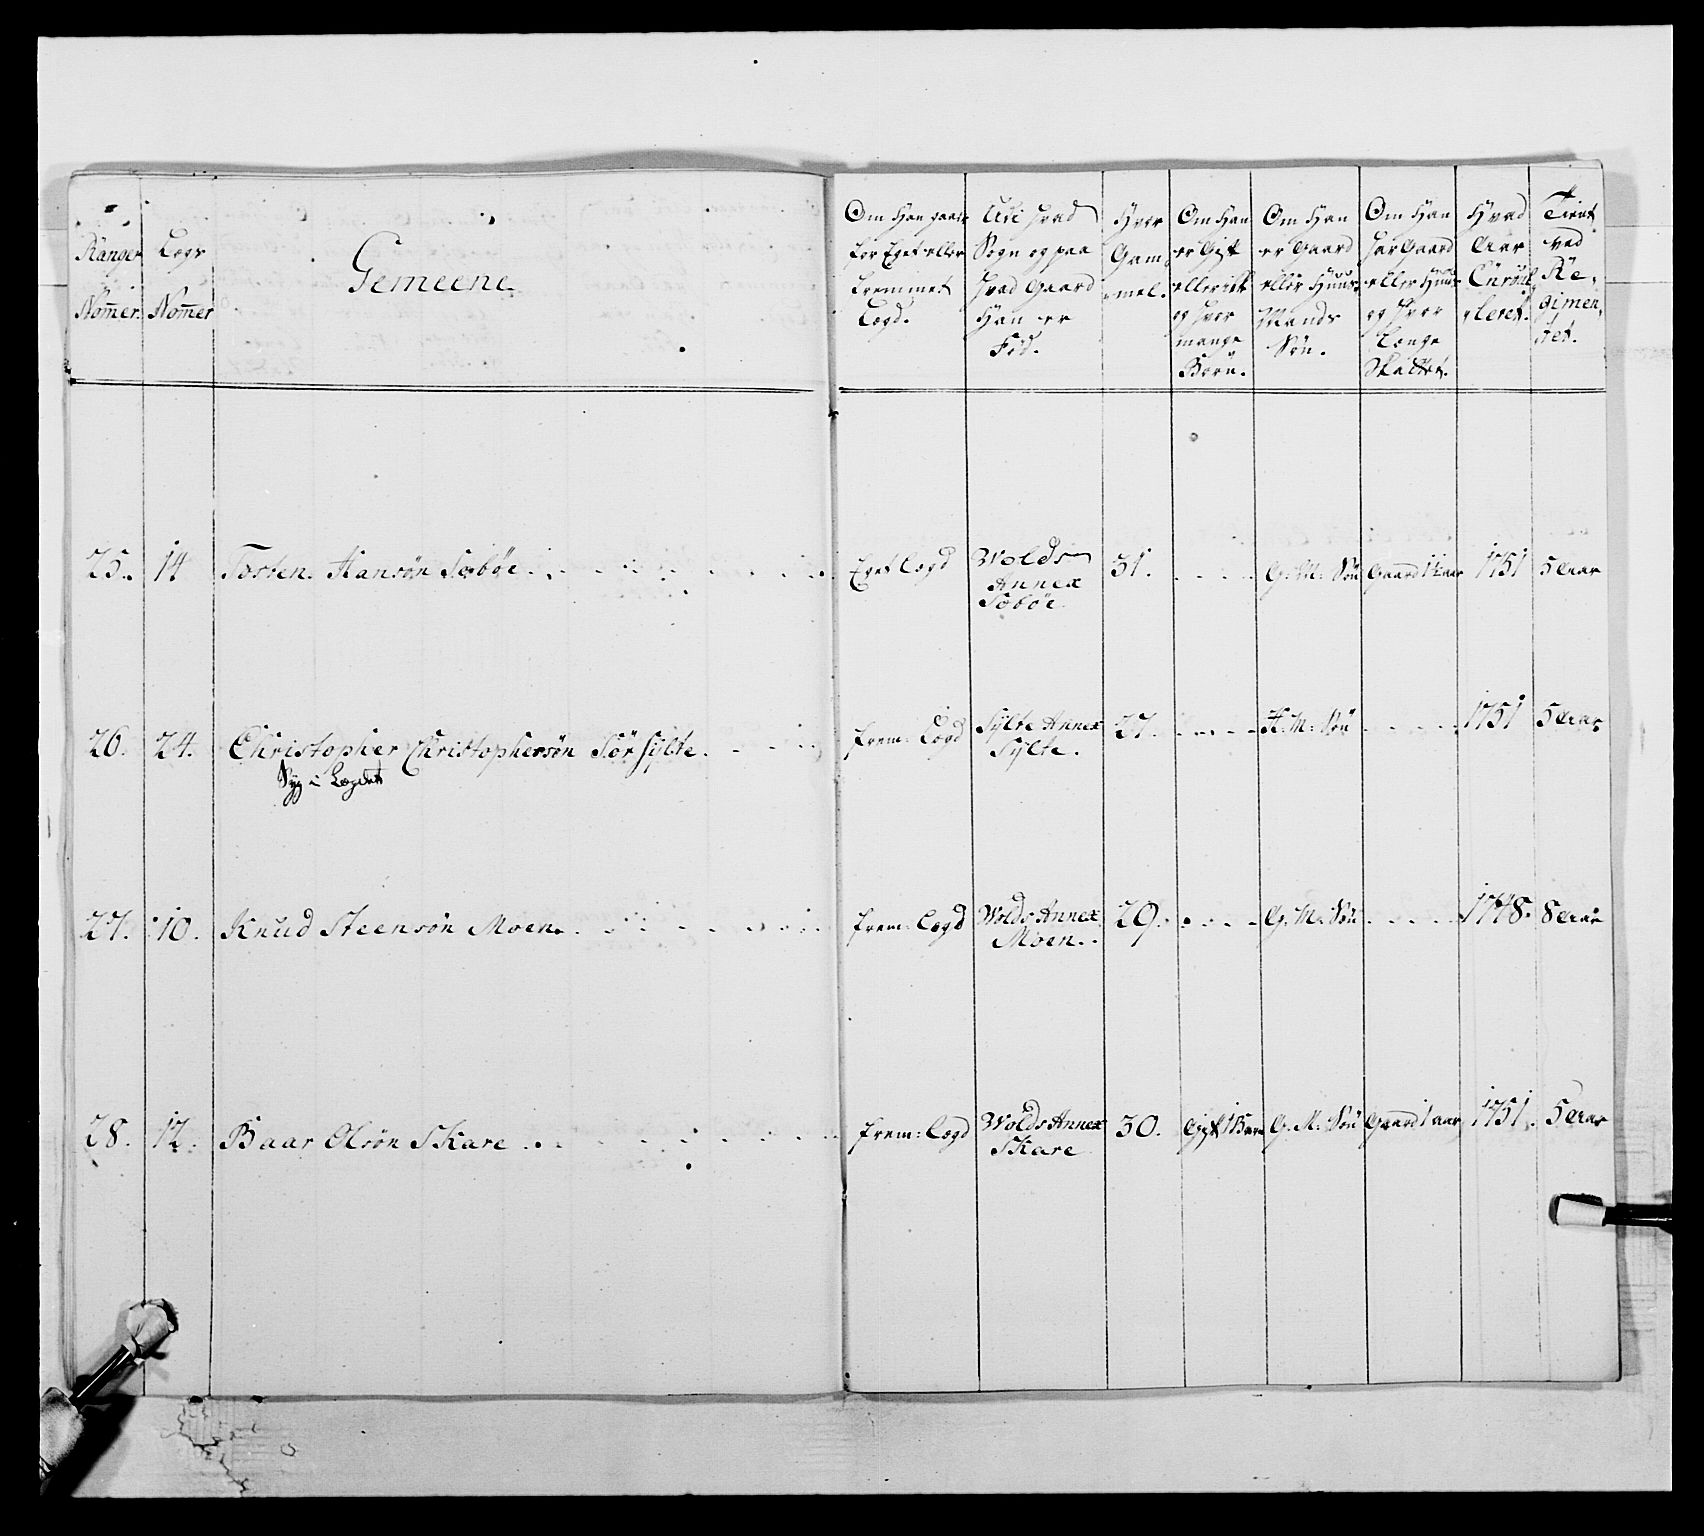 Ranger Nom̄er.
Logs Nom̄er
Gemeene
Om Han gaar for Eget eller fremmet Logd.
Udi hvad Sogn og paa hvad Gaard Han er Fød.
Hvor Gammel.
Om Han er Gift eller ikke og hvor mange Børn.
Om Han er Gaard eller Huus Mands Søn.
Om Han har Gaard eller Huus og hvor Længe
Hvad Aar Enrolleret.
Tient ved Regimentet.
25. 14 Tosten Hansøn Sæbøe Eget Logd Wolds Annex Sæbøe 31. G: M: Søn Gaard 1 1/2 aar 1751 5 Aar
26. 24. Christopher Christophersøn Sör Sylte. frem: Logd Sylte Annex Sylte. 27. H: M: Søn 1751 5 Aar
Syg i Lægdet
27. 10. Knud Steensøn Moen. frem: Logd Wolds Annex Moen. 29. G: M: Søn 1748. 8 Aar
28. 12. Baar Olsøn Skare frem: Logd Wolds Annex Skare 30. Gift 1 Barn G. M: Søn Gaard 1 aar 1751. 5 Aar